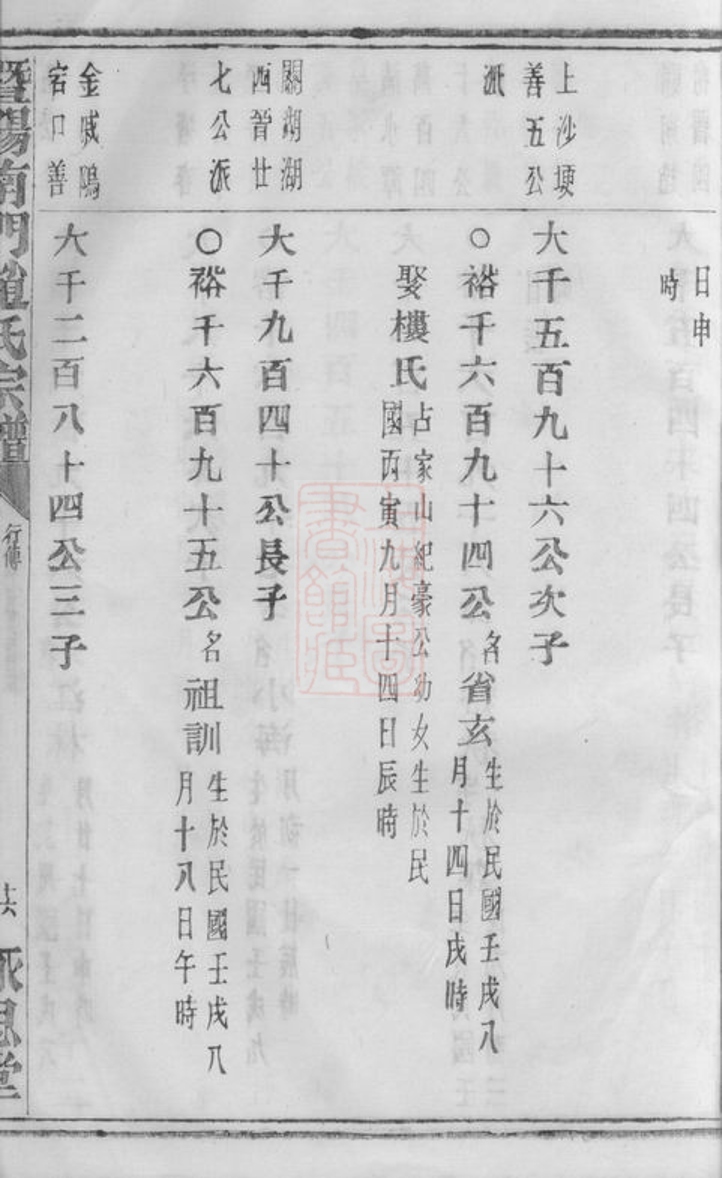 日申
時
上沙埂
善五公
派
大千五百九十六公次子
○裕千六百九十四公名省玄生於民國壬戌八
月十四日戌時
娶樓氏占家山紀豪公幼女生於民
國丙寅九月十四日辰時
關湖湖
西晉廿
七公派
大千九百四十公長子
○裕千六百九十五公名祖訓生於民國壬戌八
月十八日午時
金
宕口善
大千二百八十四公三子
暨陽南門趙氏宗譜
行傳
永思堂